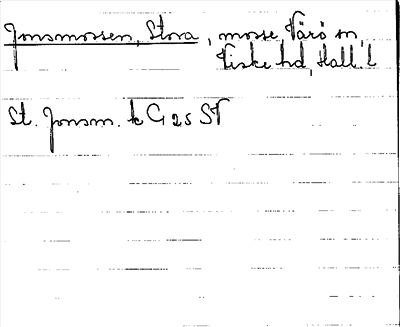 Jonsmossen, Stora, mosse, Värö sn,
Viske hd, Hall. l
St. Jonsm. k G 25 SV